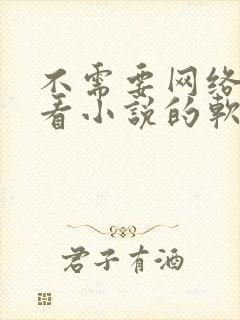 不需要网络
看小说的軟
君子有酒